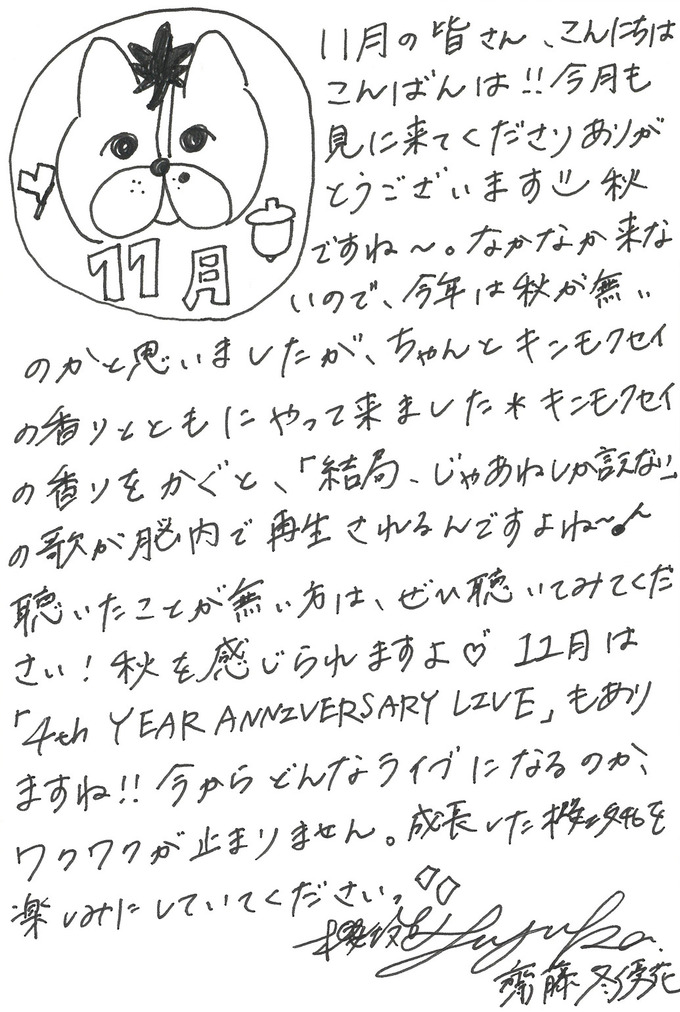 11月の皆さん、こんにちは
こんばんは!!今月も
見に来てくださりありが
とうございます 秋
ですね〜。なかなか来な
11月
いので、今年は秋が無い
のかと思いましたが、ちゃんとキンモクセイ
の香りとともにやって来ました* キンモクセイ
の香りをかぐと、「結局、じゃあねしか言えない」
の歌が脳内で再生されるんですよね〜♪
聴いたことが無い方は、ぜひ聴いてみてくだ
さい!秋を感じられますよ♡ 11月は
「4th YEAR ANNIVERSARY LIVE」もあり
ますね!!今からどんなライブになるのか、
ワクワクが止まりません。成長した櫻坂46を
楽しみにしていてください。
櫻坂46 fuyuka.
齋藤冬優花